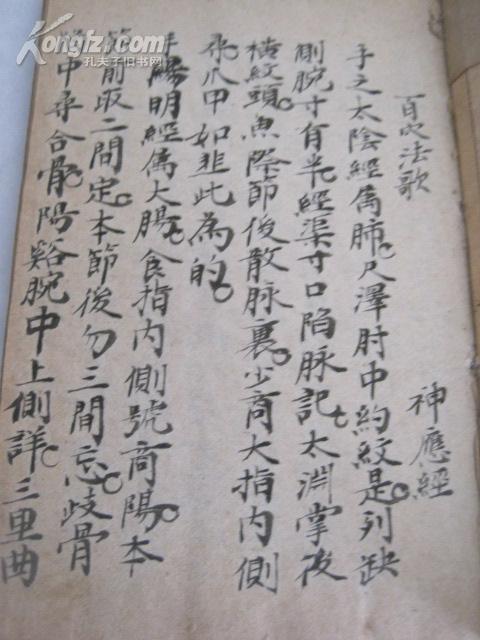 百穴法歌
神應經
手之太陰經屬肺尺澤肘中約紋是列缺
側腕寸有半經渠寸口陷脉記太淵掌後
橫紋頭魚際節後散脉裏少商大指內側
尋爪甲如韭此為的
手陽明經屬大腸食指內側號商陽本
節前取二間定本節後勿三間忘歧骨
中尋合骨陽谿腕中上側詳三里曲
Kongfz.com
孔夫子旧书网